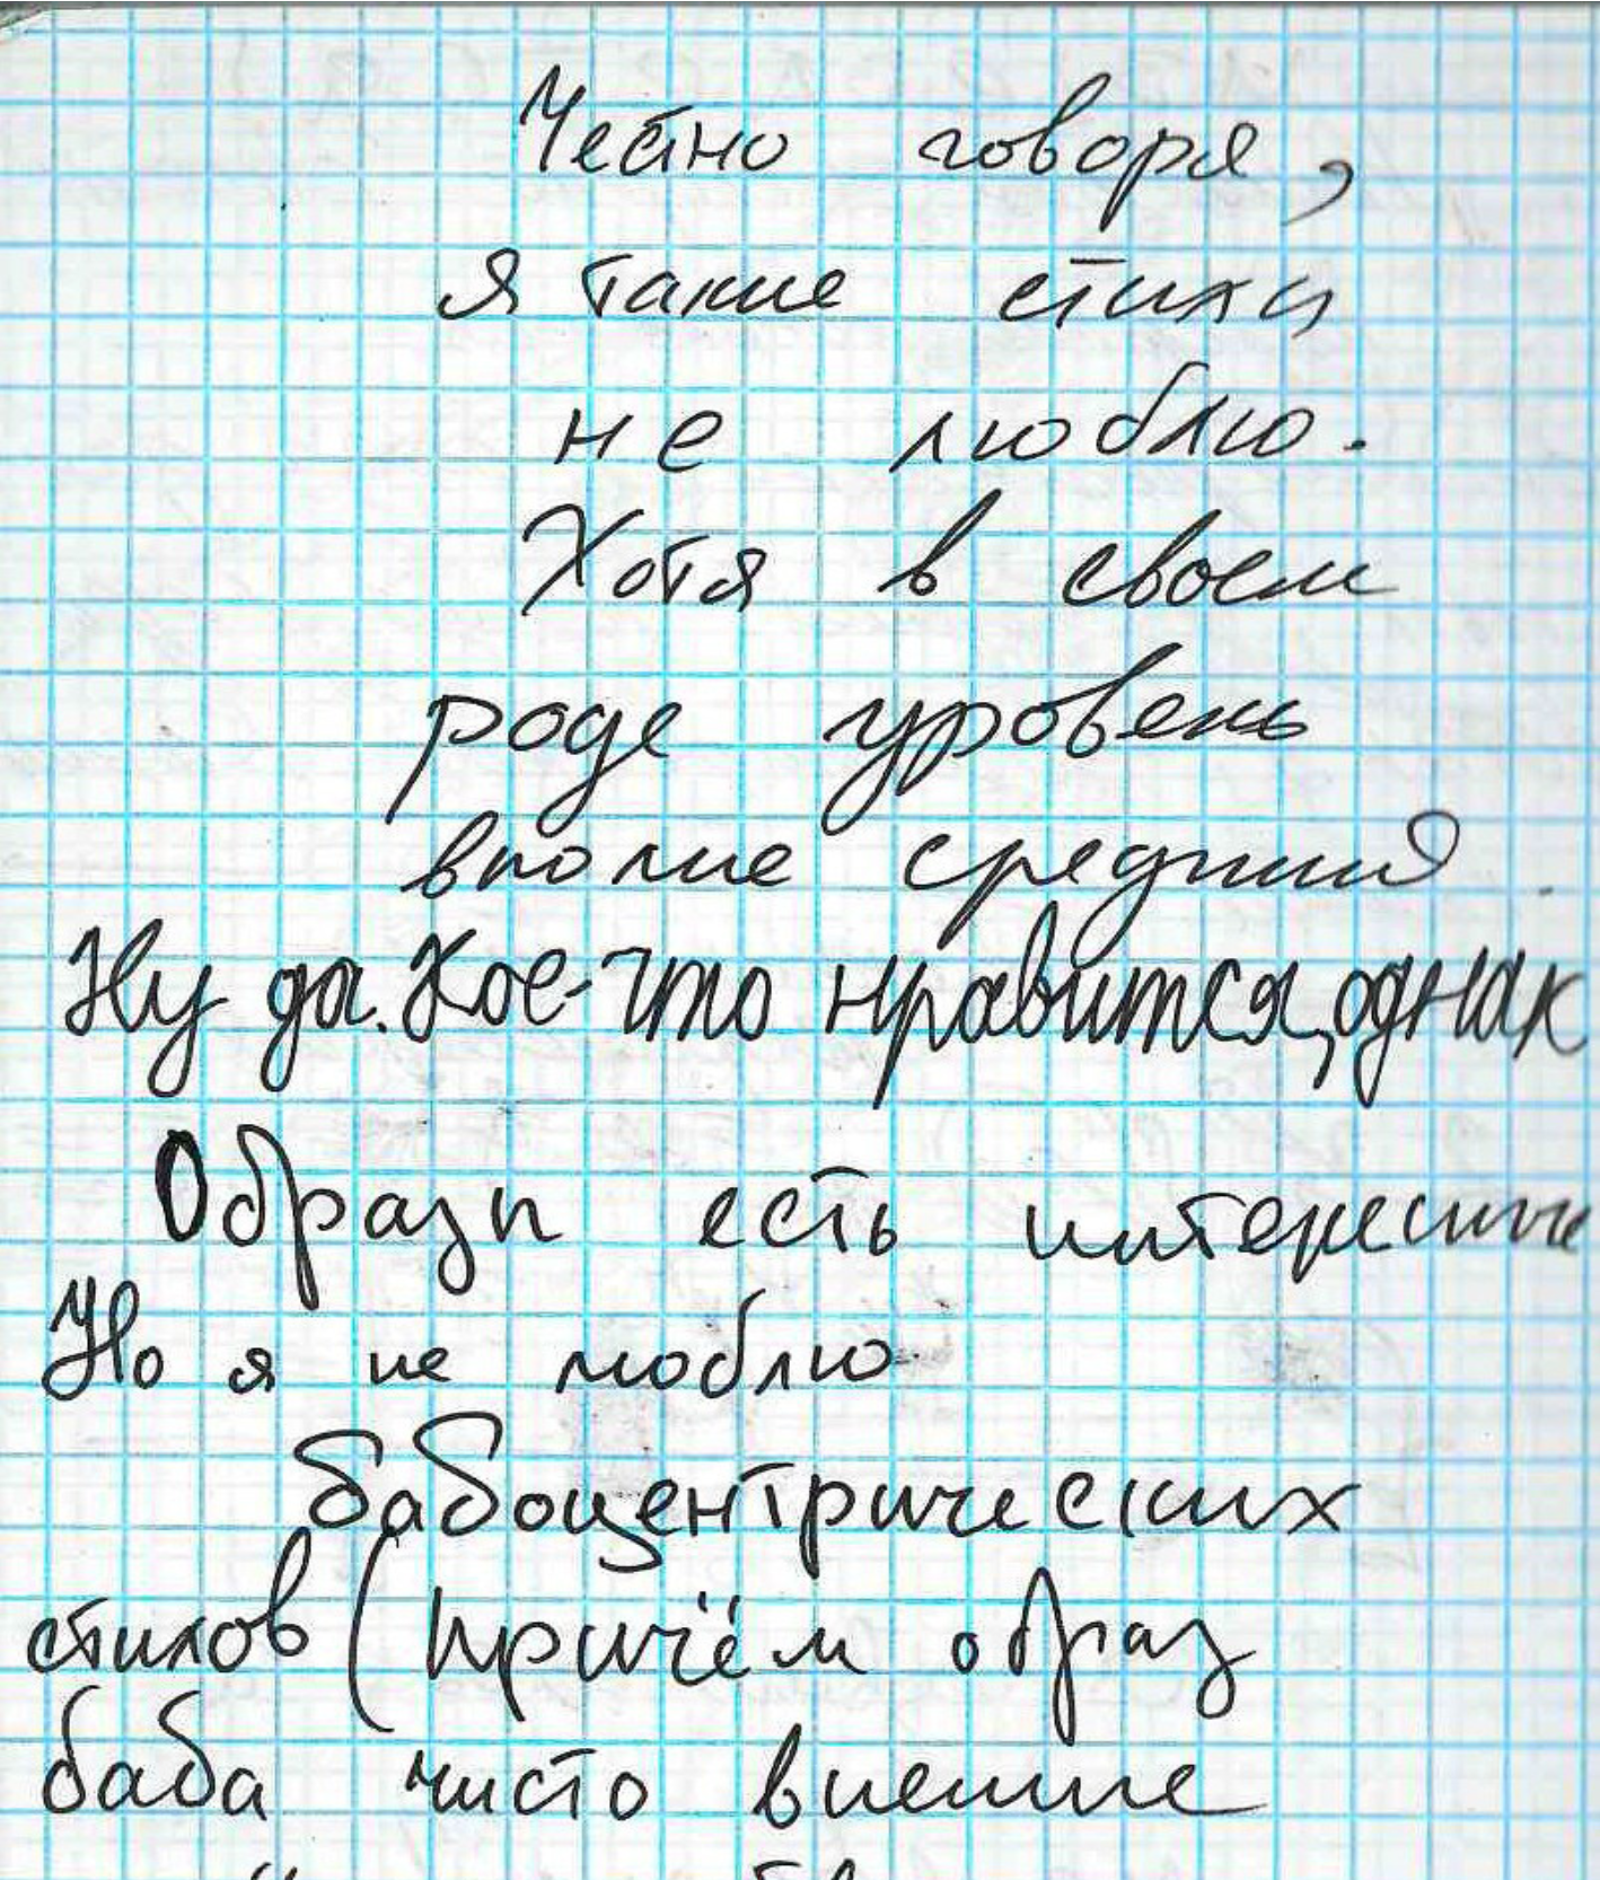 Честно говоря,
я такие стихи
не люблю.
Хотя в своем
роде уровень
вполне средний.
Ну да. Кое-что нравится, однак
Образы есть интересные
Но я не люблю
бабоцентрических
стихов (причём образ
баба чисто внешне